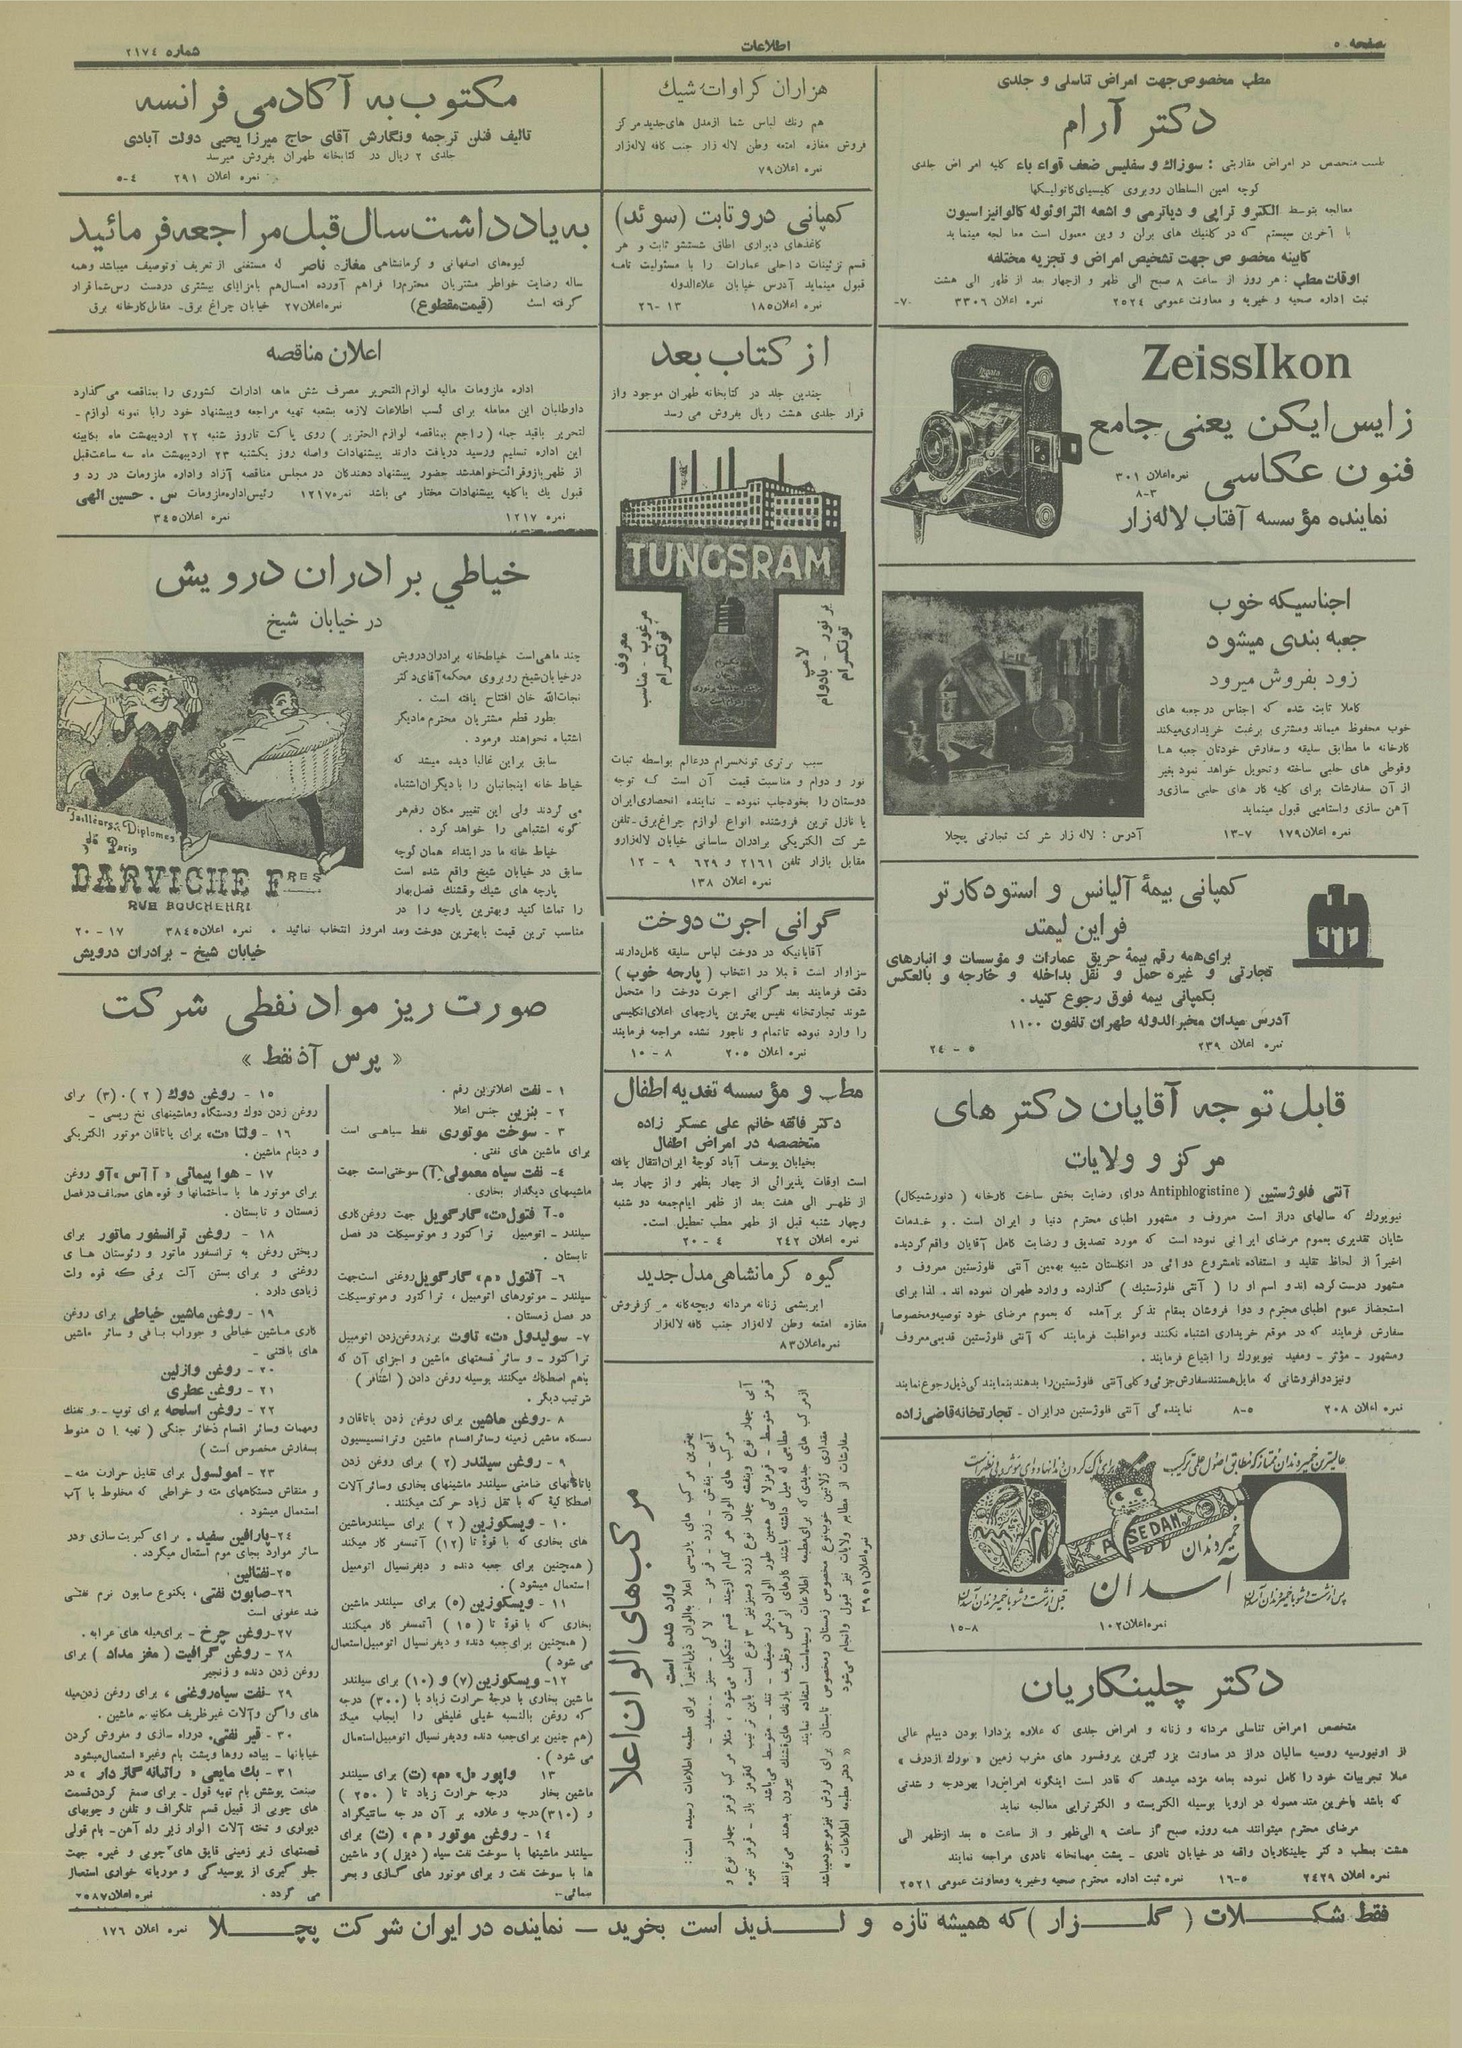 صفحه ۵
اطلاعات
شماره ۲۱۷۴
مطب مخصوص جهت امراض تناسلی و جلدی
دکتر آرام
طبیب متخصص در امراض مقاربتی : سوزاك و سفلیس ضعف قواء باء کلیه امراض جلدی
کوچه امین السلطان روبروی کلیسیای کاتولیکها
معالجه بتوسط الکترو تراپی و دیاترمی و اشعه التراوئوله کالوانیزاسیون
با آخرین سیستم که در کلنیك های برلن و وین معمول است معالجه مینماید
کابینه مخصوص جهت تشخیص امراض و تجزیه مختلفه
اوقات مطب : هر روز از ساعت ۸ صبح الی ظهر و ازچهار بعد از ظهر الی هشت
ثبت اداره صحیه و خیریه و معاونت عمومی ۲۵۲۴ نمره اعلان ۳۳۰۶ ۷۰-
ZeissIkon
زایس ایکن یعنی جامع
فنون عکاسی
نمره اعلان ۳۰۱
۸-۳
نماینده مؤسسه آفتاب لاله زار
اجناسیکه خوب
جعبه بندی میشود
زود بفروش میرود
کاملا ثابت شده که اجناس در جعبه های
خوب محفوظ میماند ومشتری برغبت خریداری میکند
کارخانه ما مطابق سلیقه و سفارش خودتان جعبه ها
وقوطی های حلبی ساخته و تحویل خواهد نمود بغیر
از آن سفارشات برای کلیه کار های حلبی سازی و
آهن سازی واستامپی قبول مینماید
نمره اعلان ۱۷۹ ۷-۱۳
آدرس : لاله زار شرکت تجارتی پچلا
کمپانی بیمهٔ آلیانس و استودکارتر
فراین لیمتد
برای همه رقم بیمهٔ حریق عمارات و مؤسسات و انبارهای
تجارتی و غیره حمل و نقل بداخله و خارجه و بالعکس
بکمپانی بیمه فوق رجوع کنید.
آدرس میدان مخبرالدوله طهران تلفون ۱۱۰۰
نمره اعلان ۲۳۹ ۵ - ۲۴
قابل توجه آقایان دکتر های
مرکز و ولایات
آنتی فلوژستین ( Antiphlogistine دوای رضایت بخش ساخت کارخانه ( دنورشمیکال)
نیویورك که سالهای دراز است معروف و مشهور اطبای محترم دنیا و ایران است . و خدمات
شایان تقدیری بعموم مرضای ایرانی نموده است که مورد تصدیق و رضایت کامل آقایان واقع گردیده
اخیراً از لحاظ تقلید و استفاده نامشروع دوائی در انگلستان شبیه بهمین آنتی فلوژستین معروف و
مشهور دوست کرده اند و اسم او را ( آنتی فلوژستیك ) گذارده و وارد طهران نموده اند . لذا برای
استحضار عموم اطبای محترم و دوا فروشان بمقام تذکر برآمده که بعموم مرضای خود توصیه و مخصوصا
سفارش فرمایند که در موقع خریداری اشتباه نکنند ومواظبت فرمایند که آنتی فلوژستین قدیمی معروف
ومشهور - مؤثر - ومفید نیویورك را ابتیاع فرمایند.
ونیز دوافروشانی که مایل هستند سفارش جزئی و کلی آنتی فلوژستین را بدهند بنمایندگی ذیل رجوع نمایند
نمره اعلان ۲۰۸ ۵-۸ نمایندگی آنتی فلوژستین در ایران - تجارتخانه قاضی زاده
ASEDAN
خمیر دندان
آسدان
نمره اعلان ۱۰۲
۸-۱۵
دکتر چلینکاریان
متخصص امراض تناسلی مردانه و زنانه و امراض جلدی که علاوه بردارا بودن دیپلم عالی
از اونیورسیه روسیه سالیان دراز در معاونت بزرگترین پروفسور های مغرب زمین «یورك ازدرف»
عملا تجربیات خود را کامل نموده بعامه مژده میدهد که قادر است اینگونه امراض را بهر درجه و شدتی
که باشد باخرین متد معموله در اروپا بوسیله الکتریسته و الکترتراپی معالجه نماید
مرضای محترم میتوانند همه روزه صبح از ساعت ۹ الی ظهر و از ساعت ۵ بعد ازظهر الی
هشت بمطب دکتر چلینکاریان واقعه در خیابان نادری - پشت مهمانخانه نادری مراجعه نمایند
نمره اعلان ۲۴۲۹ ۵-۱۶ نمره ثبت اداره محترم صحیه وخیریه و معاونت عمومی ۲۵۲۱
هزاران کراوات شیك
هم رنك لباس شما ازمدل های جدید مرکز
فروش مغازه امتعه وطن لاله زار جنب کافه لاله زار
نمره اعلان ۷۹
کمپانی دروتابت (سوئد)
کاغذهای دیواری اطاق شستشو ثابت و هر
قسم تزئینات داخلی عمارات را با مسئولیت تامه
قبول مینماید آدرس خیابان علاءالدوله
نمره اعلان ۱۸۵ ۱۳ -۲۶
از کتاب بعد
چندین جلد در کتابخانه طهران موجود واز
قرار جلدی هشت ریال بفروش می رسد
TUNGSRAM
پر نور - بادوام
لامپ
تونکسرام
معروف
مرغوب - مناسب
تونکسرام
سبب برتری تونکسرام درعالم بواسطه ثبات
نور و دوام و مناسبت قیمت آن است که توجه
دوستان را بخودجلب نموده - نماینده انحصاری ایران
با نازل ترین فروشنده انواع لوازم چراغ برق - تلفن
شرکت الکتریکی برادران ساسانی خیابان لاله زارو
مقابل بازار تلفن ۲۱۶۱ و ۶۲۹ ۹ - ۱۲
نمره اعلان ۱۳۸
گرانی اجرت دوخت
آقایانیکه در دوخت لباس سلیقه کامل دارند
سزاوار است قبلا در انتخاب ( پارچه خوب )
دقت فرمایند بعد گرانی اجرت دوخت را متحمل
شوند تجارتخانه نفیس بهترین پارچهای اعلای انگلیسی
را وارد نموده تاتمام و ناجور نشده مراجعه فرمایند
نمره اعلان ۲۰۵ ۸ - ۱۰
مطب و مؤسسه تغذیه اطفال
دکتر فائقه خانم علی عسکر زاده
متخصصه در امراض اطفال
بخیابان یوسف آباد کوچهٔ ایران انتقال یافته
است اوقات پذیرائی از چهار بظهر و از چهار بعد
از ظهر الی هفت بعد از ظهر ایام جمعه دو شنبه
وچهار شنبه قبل از ظهر مطب تعطیل است.
نمره اعلان ۲۴۲ ۴ - ۲۰
گیوه کرمانشاهی مدل جدید
ابریشمی زنانه مردانه وبچه گانه مرکز فروش
مغازه امتعه وطن لاله زار جنب کافه لاله زار
نمره اعلان ۸۳
مرکب های الوان اعلا
وارد شده است
بهترین مرکب های پاریسی اعلا بالوان ذیل اخیراً برای مطبعه اطلاعات رسیده است :
آبی - بنفش - زرد - قرمز - لاکی - سبز - سفید -
نمره اعلان ۳۹۵۱
مکتوب به آکادمی فرانسه
تالیف فنلن ترجمه ونگارش آقای حاج میرزا یحیی دولت آبادی
جلدی ۲ ریال در کتابخانه طهران بفروش میرسد
نمره اعلان ۲۹۱ ۴-۵
به یادداشت سال قبل مراجعه فرمائید
گیوه های اصفهانی و کرمانشاهی مغازه ناصر که مستغنی از تعریف وتوصیف میباشد وهمه
ساله رضایت خواطر مشتریان محترم را فراهم آورده امسال هم بامزایای بیشتری دردست رس شما قرار
گرفته است (قیمت مقطوع) نمره اعلان ۲۷ خیابان چراغ برق - مقابل کارخانه برق
اعلان مناقصه
اداره ملزومات مالیه لوازم التحریر مصرف شش ماهه ادارات کشوری را بمناقصه می گذارد
داوطلبان این معامله برای کسب اطلاعات لازمه بشعبه تهیه مراجعه وپیشنهاد خود را با نمونه لوازم -
لتحریر باقید جمله ( راجع بمناقصه لوازم التحریر ) روی پاکت تا روز شنبه ۲۲ اردیبهشت ماه بکابینه
این اداره تسلیم ورسید دریافت دارند پیشنهادات واصله روز یکشنبه ۲۳ اردیبهشت ماه سه ساعت قبل
از ظهر باز وقرائت خواهد شد حضور پیشنهاد دهندگان در مجلس مناقصه آزاد واداره ملزومات در رد و
قبول یك یا کلیه پیشنهادات مختار می باشد نمره ۱۲۱۷ رئیس اداره ملزومات س . حسین الهی
نمره ۱۲۱۷ نمره اعلان ۳۴۵
خیاطی برادران درویش
در خیابان شیخ
چند ماهی است خیاطخانه برادران درویش
در خیابان شیخ روبروی محکمه آقای دکتر
نجات الله خان افتتاح یافته است .
بطور قطع مشتریان محترم ما دیگر
اشتباه نخواهند فرمود .
سابق براین غالبا دیده میشد که
خیاط خانه اینجانبان را با دیگران اشتباه
می کردند ولی این تغییر مکان رفع هر
گونه اشتباهی را خواهد کرد .
خیاط خانه ما در ابتداء همان کوچه
سابق در خیابان شیخ واقع شده است
پارچه های شیك وقشنك فصل بهار
را تماشا کنید وبهترین پارچه را در
مناسب ترین قیمت بابهترین دوخت ومد امروز انتخاب نمائید . نمره اعلان ۳۸۴۵ ۱۷ - ۲۰
خیابان شیخ - برادران درویش
Tailleurs Diplomés
de Paris
DARVICHE FRES
RUE BOUCHEHRI
صورت ریز مواد نفطی شرکت
« پرس آذ نفط »
۱ - نفت اعلاترین رقم .
۲ - بنزین جنس اعلا
۳ - سوخت موتوری نفط سیاهی است
برای ماشین های نفتی .
۴- نفت سیاه معمولی (آ) سوختی است جهت
ماشینهای دیگدار بخاری .
۵- آفتول «ت» گارگویل جهت روغن کاری
سیلندر - اتومبیل، تراکتور و موتوسیکلت در فصل
تابستان .
۶- آفتول «م» گارگویل روغنی است جهت
سیلندر - موتورهای اتومبیل ، تراکتور و موتوسیکلت
در فصل زمستان .
۷- سولیدول «ت» تاوت برای روغن زدن اتومبیل
تراکتور - و سائر قسمتهای ماشین و اجزای آن که
باهم اصطکاك میکنند بوسیله روغن دادن
ترتیب دیگر .
۸ - روغن ماشین برای روغن زدن یاتاقان و
دستگاه ماشین زمینه وسائر اقسام ماشین وترانسمیسیون
۹ - روغن سیلندر (۲) برای روغن زدن
یاتاقانهای ضامنی سیلندر ماشینهای بخاری وسائر آلات
اصطکاکیه که با ثقل زیاد حرکت میکنند .
۱۰ - ویسکوزین (۲) برای سیلندر ماشین
های بخاری که با قوهٔ تا (۱۲) آتمسفر کار میکند
( همچنین برای جعبه دنده و دیفرنسیال اتومبیل
استعمال میشود ) .
۱۱ - ویسکوزین (۵) برای سیلندر ماشین
بخاری که با قوهٔ تا ( ۱۵ ) آتمسفر کار میکنند
( همچنین برای جعبه دنده و دیفرنسیال اتومبیل استعمال
می شود )
۱۲- ویسکوزین (۷) و (۱۰) برای سیلندر
ماشین بخاری با درجهٔ حرارت زیاد با (۳۰۰) درجه
که روغن بالنسبه خیلی غلیظی را ایجاب میکند
(هم چنین برای جعبه دنده ودیفرنسیال اتومبیل استعمال
می شود )
۱۳ واپور «ل» «م» (ت) برای سیلندر
ماشین بخار درجه حرارت زیاد تا ( ۲۵۰ )
و (۳۱۰) درجه و علاوه بر آن درجه سانتیگراد
۱۴ - روغن موتور «م» (ت) برای
سیلندر ماشینها با سوخت نفت سیاه ( دیزل ) و ماشین
ها با سوخت نفت و برای موتور های گازی و بحر
۱۵ - روغن دوك (۲) . (۳) برای
روغن زدن دوك ودستگاه وماشینهای نخ ریسی -
۱۶ - ولتا «ت» برای یاتاقان موتور الکتریکی
و دینام ماشین .
۱۷ - هوا پیمائی « آ آس » آو روغن
برای موتور ها با ساختمانها و قوه های مختلف در فصل
زمستان و تابستان .
۱۸ - روغن ترانسفور ماتور برای
ریختن روغن به ترانسفور ماتور و رئوستان های
روغنی و برای بستن آلت برقی که قوه ولت
زیادی دارد .
۱۹ - روغن ماشین خیاطی برای روغن
کاری ماشین خیاطی و جوراب بافی و سائر ماشین
های بافتنی -
۲۰ - روغن وازلین
۲۱ - روغن عطری
۲۲ - روغن اسلحه برای توپ - و تفنك
ومهمات وسائر اقسام ذخائر جنگی ( تهیه آن منوط
بسفارش مخصوص است )
۲۳ - امولسول برای تقلیل حرارت مته -
و منقاش دستگاههای مته و خراطی که مخلوط با آب
استعمال میشود .
۲۴-پارافین سفید . برای کبریت سازی ودر
سائر موارد بجای موم استعمال میگردد .
۲۵-نفتالین .
۲۶-صابون نفتی ، یکنوع صابون نرم نفتی
ضد عفونی است
۲۷-روغن چرخ - برای میله های عرابه .
۲۸ - روغن گرافیت ( مغز مداد ) برای
روغن زدن دنده و زنجیر
۲۹ -نفت سیاه روغنی ، برای روغن زدن میله
های واگن وآلات غیر ظریف مکانیه ماشین .
۳۰ - قیر نفتی . دوراه سازی و مفروش کردن
خیابانها - پیاده روها وپشت بام وغیره استعمال میشود
۳۱ - بك مایعی « راتبانه گاز دار » در
صنعت پوشش بام تهیه قول - برای صمغ کردن قسمت
های چوبی از قبیل قسم تلگراف و تلفن و چوبهای
دیواری و تخته آلات الوار زیر راه آهن - بام قولی
قسمتهای زیر زمینی قایق های چوبی و غیره جهت
جلوگیری از پوسیدگی و موریانه خواری استعمال
می گردد . نمره اعلان ۲۵۸۷
فقط شکلات ( گلزار ) که همیشه تازه و لذیذ است بخرید - نماینده در ایران شرکت پچلا نمره اعلان ۱۷۶